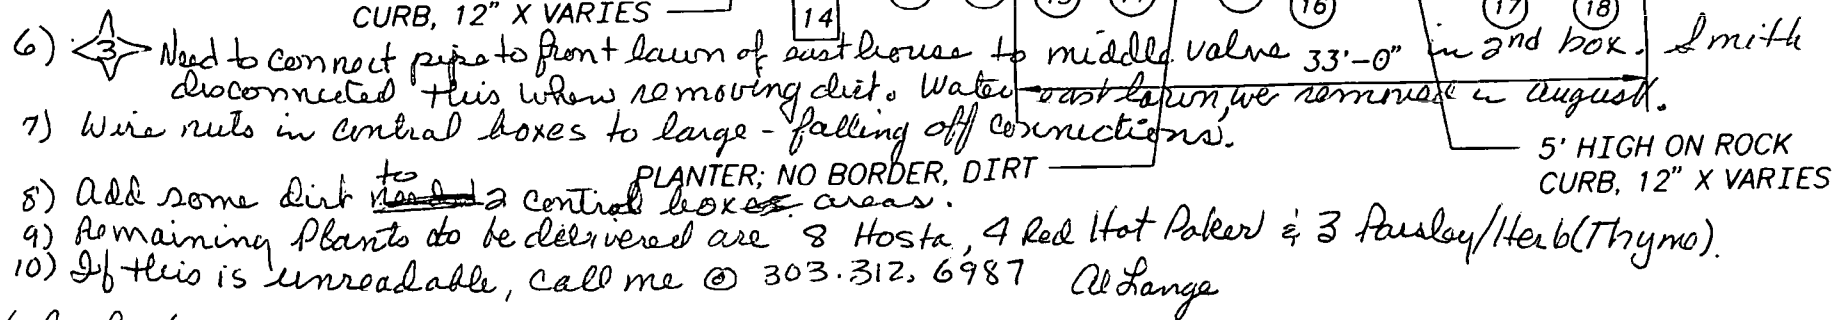 CURB, 12" X VARIES
14
15
16
17
18
6) 3 Need to connect pipe to front lawn of east house to middle valve in 2nd box. Smith
33'-0"
disconnected this when removing dirt. Water east lawn, we removed in August.
7) Wire nuts in control boxes to large - falling off connections.
5' HIGH ON ROCK
CURB, 12" X VARIES
PLANTER; NO BORDER, DIRT
8) Add some dirt to 2 control box areas.
9) Remaining Plants to be delivered are 8 Hosta, 4 Red Hot Poker & 3 Parsley/Herb(Thyme).
10) If this is unreadable, call me @ 303.312.6987 Al Lange